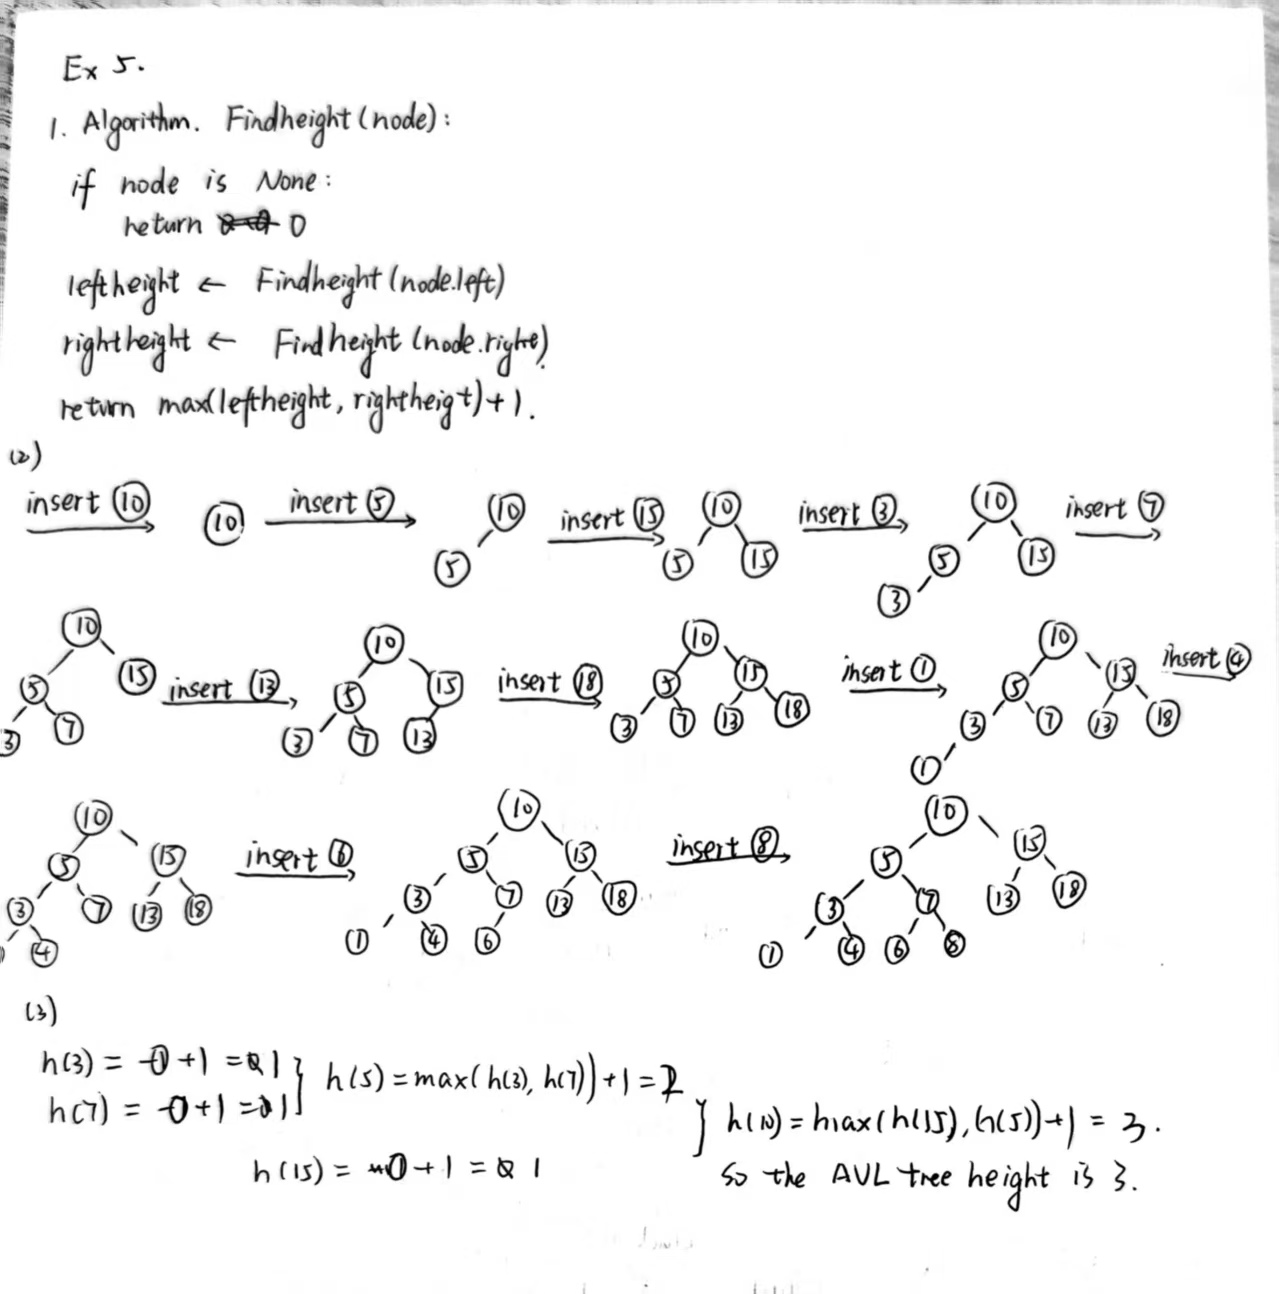 Ex 5.
1. Algorithm. Findheight(node):
if node is None:
return 0
leftheight ← Findheight(node.left)
rightheight ← Findheight(node.right)
return max(leftheight, rightheigt)+1.
(2)
insert 10 10 insert 5 10 5 insert 15 10 5 15 insert 3 10 5 15 3 insert 7
10 5 15 3 7 insert 13 10 5 15 3 7 13 insert 18 10 5 15 3 7 13 18 insert 1 10 5 15 3 7 13 18 1 insert 4
10 5 15 3 7 13 18 4 insert 6 10 5 15 3 7 13 18 1 4 6 insert 8 10 5 15 3 7 13 18 1 4 6 8
(3)
h(3) = 0+1 = 1
h(7) = 0+1 = 1
} h(5) = max(h(3), h(7))+1 = 2
h(15) = 0+1 = 1
} h(10) = max(h(15), h(5))+1 = 3.
So the AVL tree height is 3.